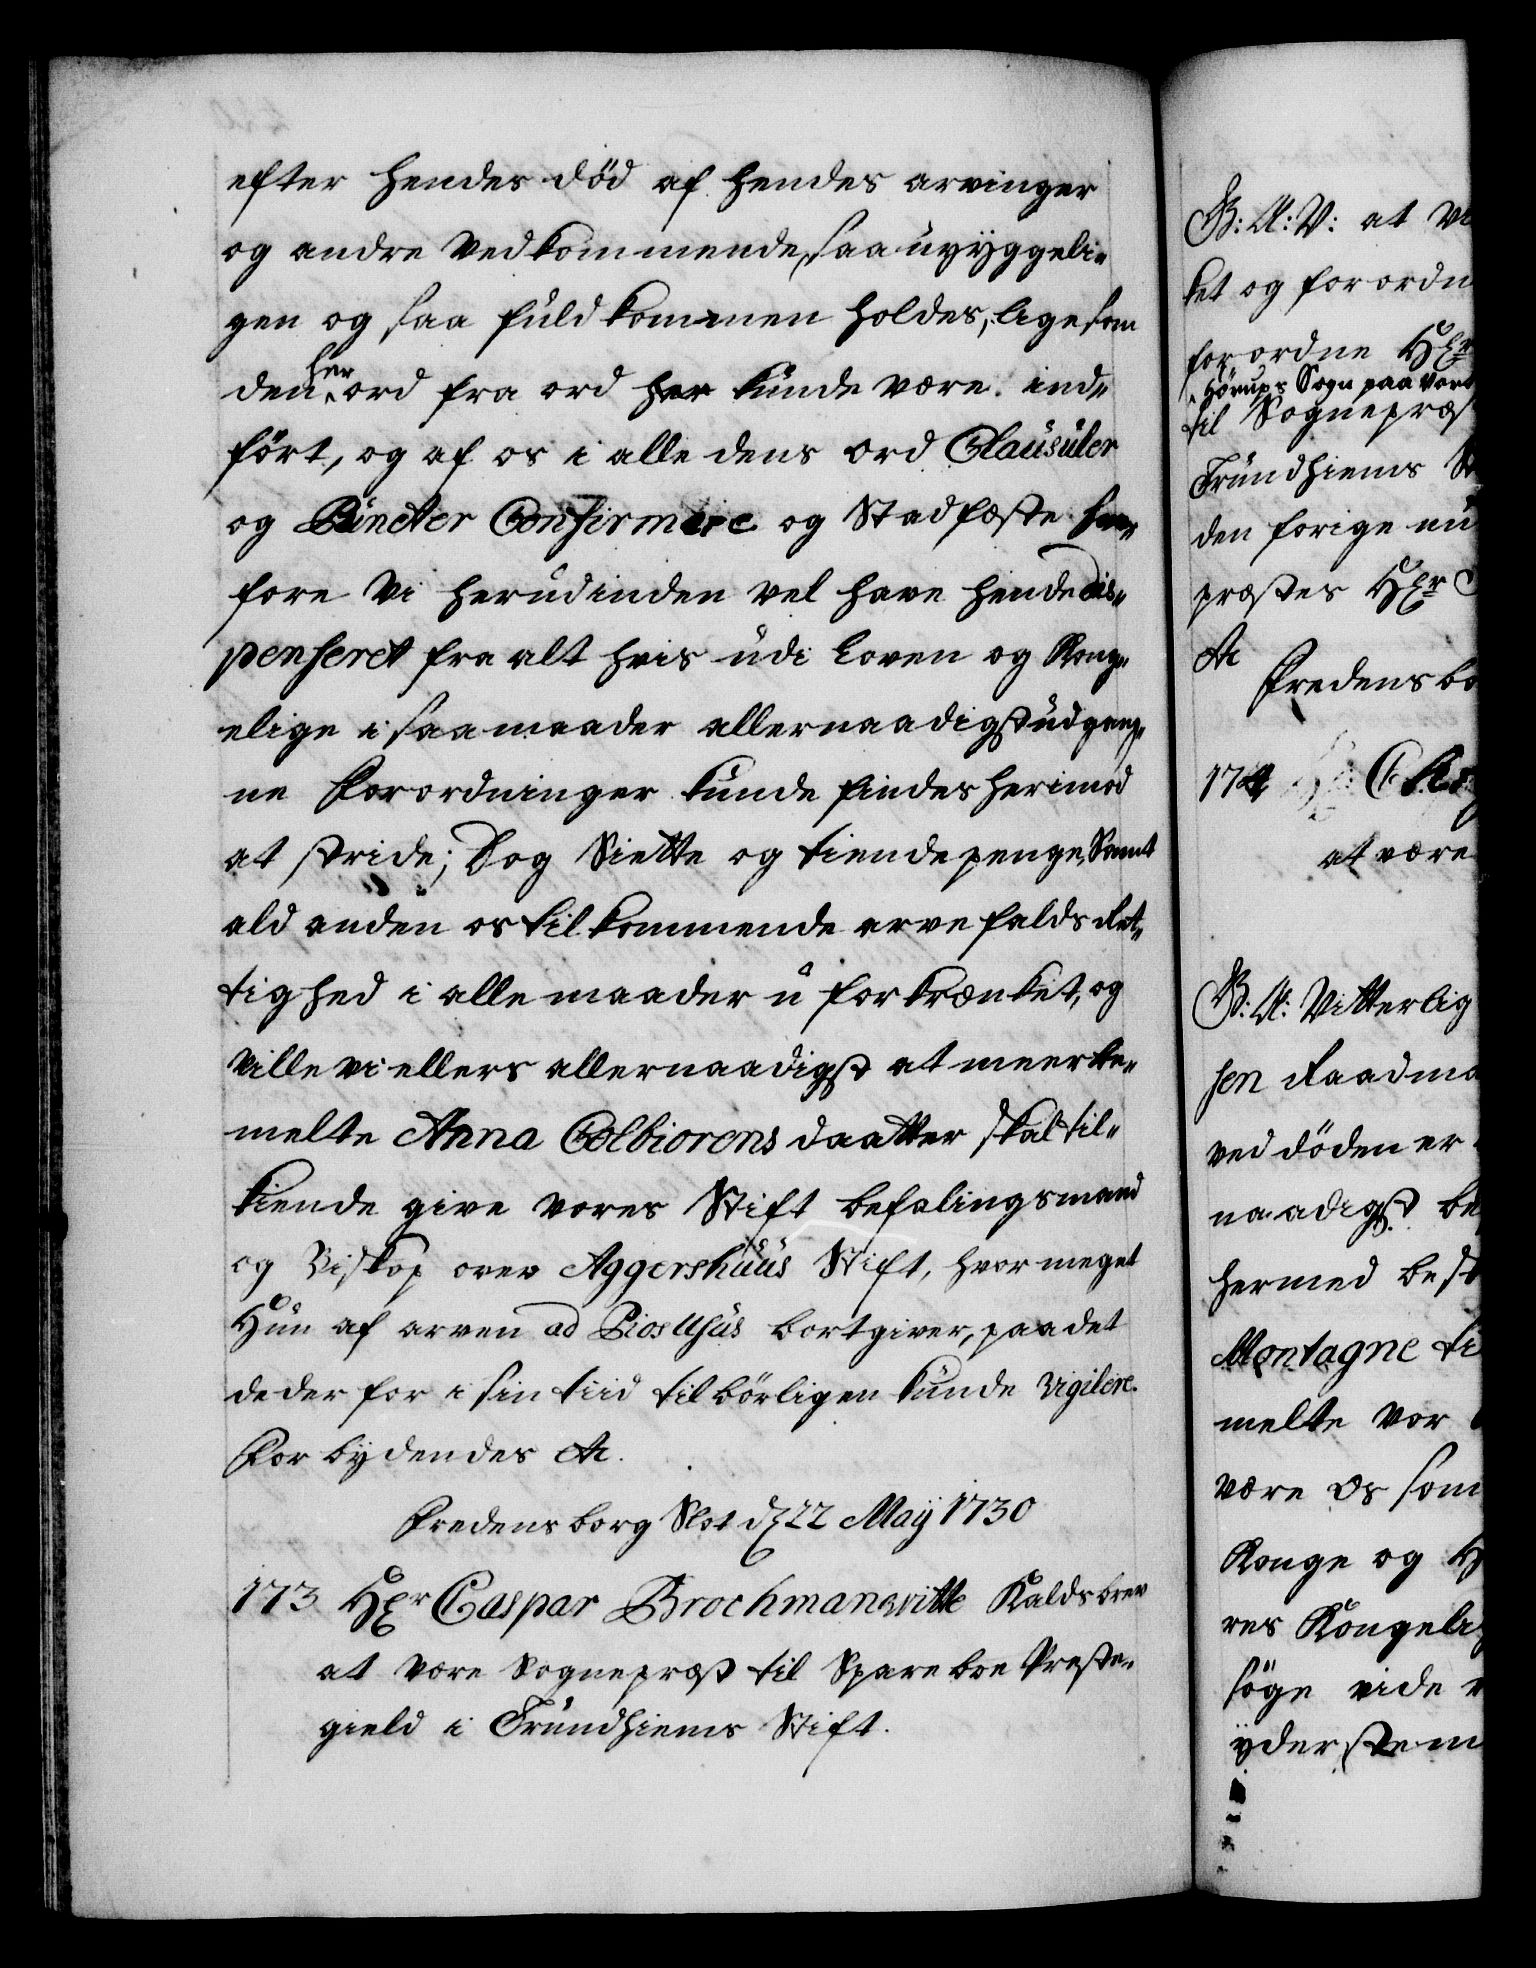 efter hendes död af hendes arvinger
og andre vedkommende, saa uryggeli„
gen og saa fuldkommen holdes, lige som
den her ord fra ord her kunde være ind„
fört, og af os i alle dens ord Clausuler
og Puncter Confirmere og Stadfæste hvor„
fore Vi herudinden vel have hende dis„
penseret fra alt hvis udi Loven og Kong„
elige i saa maader allernaadigst udgang„
ne Forordninger kunde findes herimod
at stride; Dog Siette og tiende penge, Samt
ald anden os tilkommende arve falds ret„
tighed i alle maader u forkrænket, og
ville vi ellers allernaadigst at meerbe„
melte Anna Colbiorens daatter skal til„
kiende give vores Stift befalingsmand
og Biskop over Aggershuus Stift, hvor meget
Hun af arven ad Pios Usus bortgiver, paa det
de der for i sin tiid tilbörligen kunde vigilere.
Forbydendes &c.
Fredensborg Slot d 22 Maij 1730
173 Hr Caspar Brochman Witte Kaldsbrev
at være Sognepræst til Spareboe Præste„
gield i Trundhiems Stift.
G: A: V: at Vi
ket og forordn
forordne Hr
Hörups Sogn paa Vort
til Sognepræst
Trundhiems St
den forige nu
præstes Hr
&c
Fredensbo
174
at være
G: A: Vitterlig
sen Raadma
ved döden er
naadigst be
hermed best
Montagne ti
melte vor
være Os som
Konge og H
res Kongelig
söge vide
yderste m